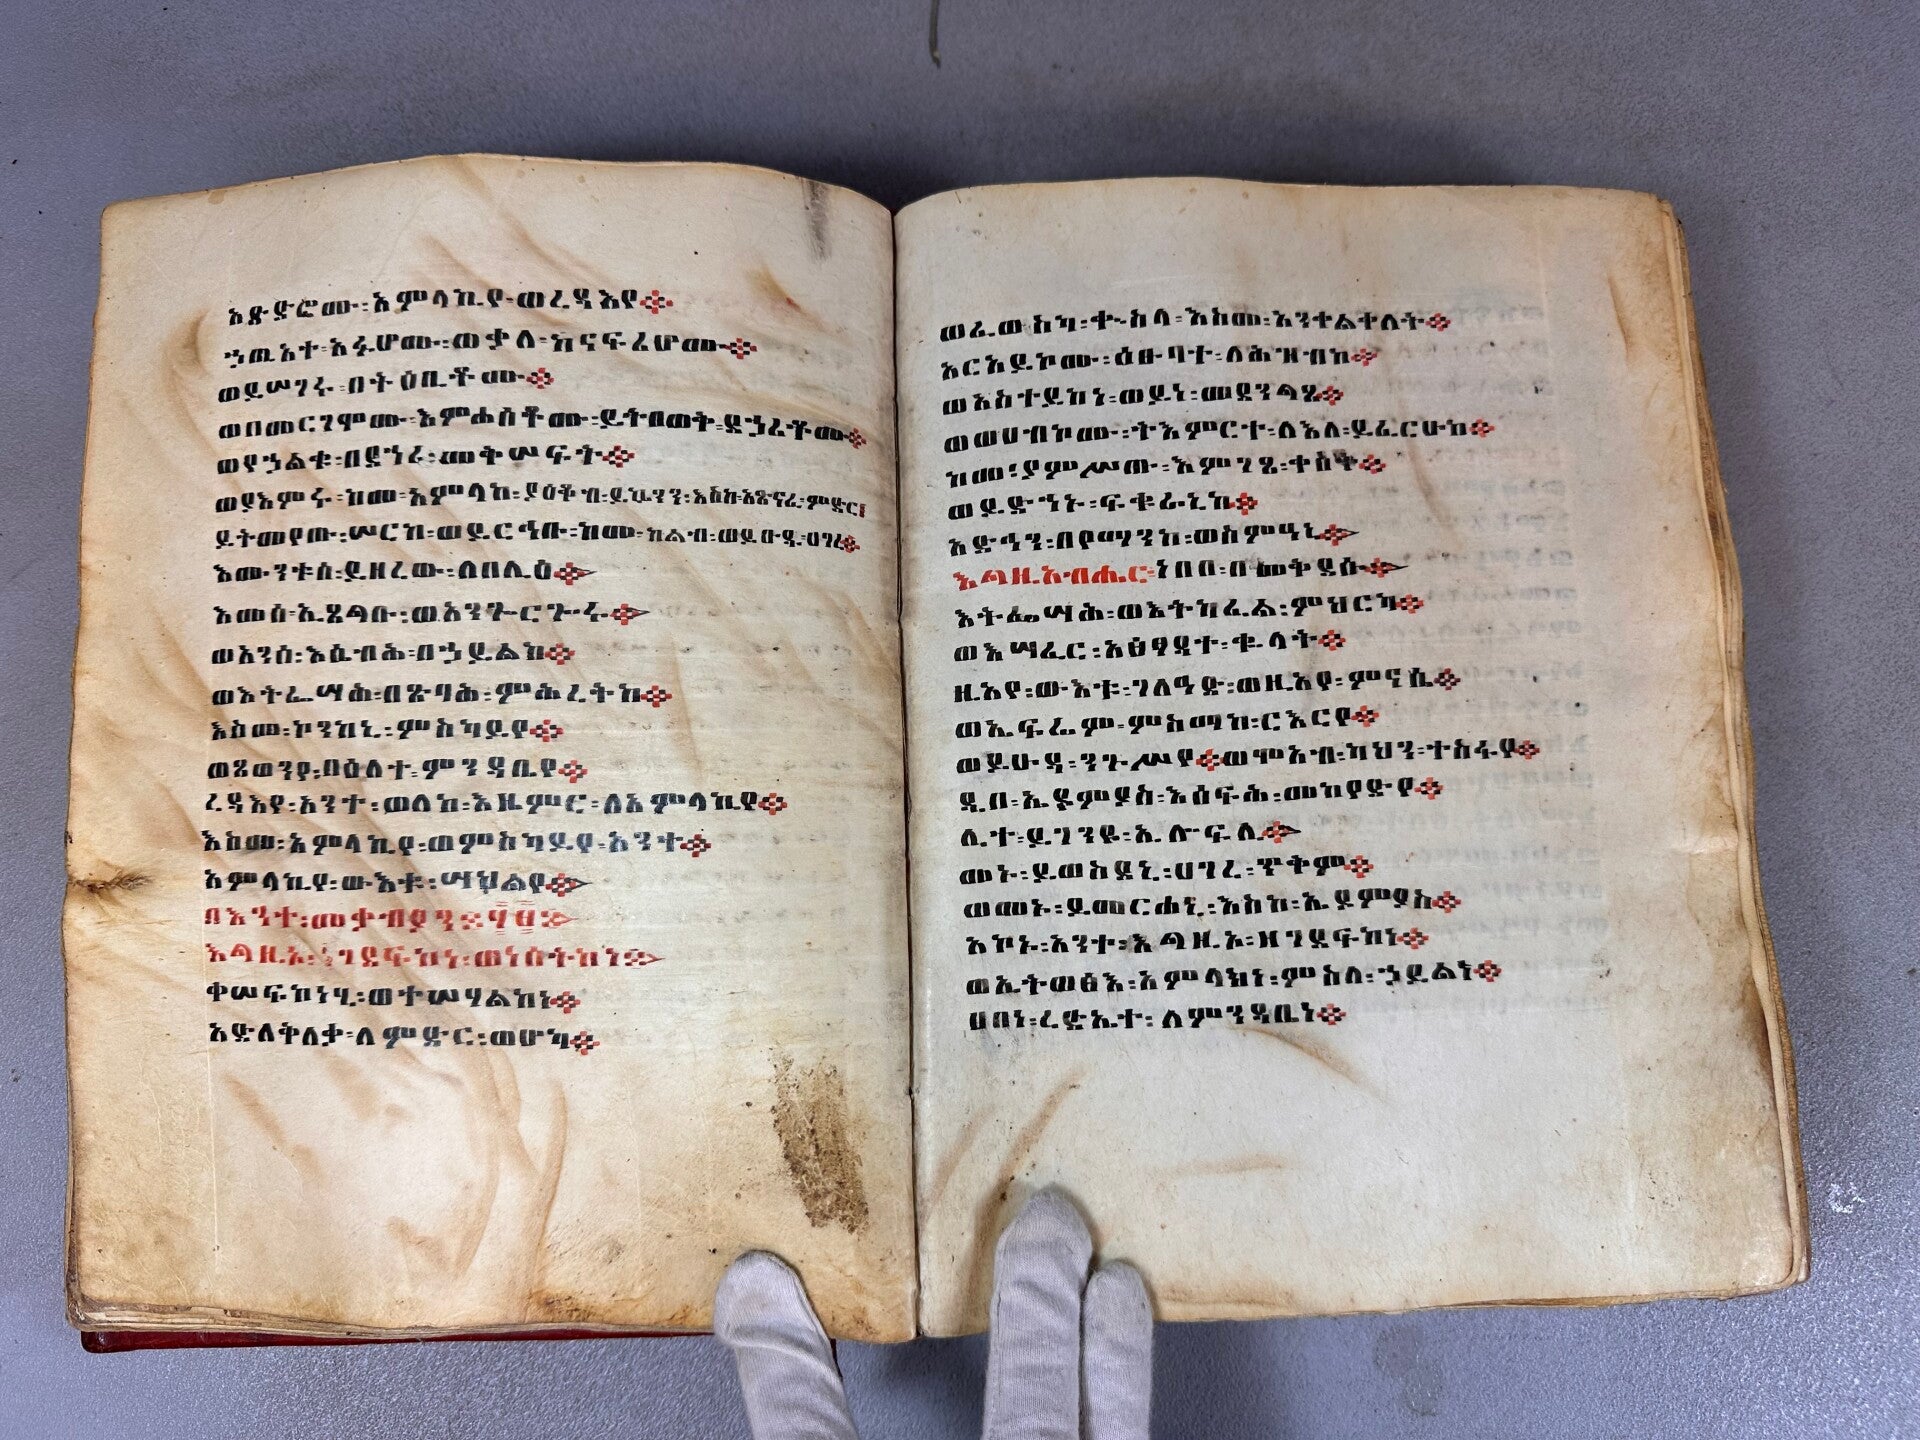 አጽድፎሙ፡አምላኪየ፡ወረዳእየ፨
ኃጢአተ፡አፉሆሙ፡ወቃለ፡ከናፍሪሆሙ፨
ወይሠገሩ፡በትዕቢቶሙ፨
ወበመርገሞሙ፡እምሐሰቶሙ፡ይትበወቅ፡ደኃሪቶሙ፨
ወየኃልቁ፡በደኃሪ፡መቅሠፍት፨
ወያእምሩ፡ከመ፡አምላከ፡ያዕቆብ፡ይኴንን፡እስከ፡አጽናፈ፡ምድር፡
ይትመየጡ፡ሠርከ፡ወይርኀቡ፡ከመ፡ከልብ፡ወይዑዱ፡ሀገረ፨
እሙንቱሰ፡ይዘረው፡ለበሊዕ፨
እመሰ፡ኢጸግቡ፡ወአንጐርጐሩ፨
ወአንሰ፡እሴብሕ፡በኃይልከ፨
ወእትፌሣሕ፡በጽባሕ፡ምሕረትከ፨
እስመ፡ኮንከኒ፡ምስካይየ፨
ወጸወንየ፡በዕለተ፡ምንዳቤየ፨
ረዳእየ፡አንተ፡ወለከ፡እዜምር፡ለአምላኪየ፨
እስመ፡አምላኪየ፡ወምስካይየ፡አንተ፨
አምላኪየ፡ውእቱ፡ሣህልየ፨
በእንተ፡መቃብያን፡
እግዚኦ፡ገደፍከነ፡ወነሰትከነ፨
ቀሠፍከነሂ፡ወተሠሃልከነ፨
አድለቅለቃ፡ለምድር፡ወሆካ፨
ወፈውስካ፡ቍስላ፡እስመ፡አንቀልቀለት፨
አርአይኮሙ፡ዕፁባተ፡ለሕዝብከ፨
ወአስተይከነ፡ወይነ፡መደንግፄ፨
ወወሀብኮሙ፡ትእምርተ፡ለእለ፡ይፈርሁከ፨
ከመ፡ያምሥጡ፡እምገጸ፡ቀስት፨
ወይድኀኑ፡ፍቁራኒከ፨
አድኅን፡በየማንከ፡ወስምዓኒ፨
እግዚአብሔር፡ነበበ፡በመቅደሱ፨
እትፌሣሕ፡ወእትከፈል፡ምህርካ፨
ወእሣፈር፡አዕፃዳተ፡ቄላት፨
ዚአየ፡ውእቱ፡ገለዓድ፡ወዚአየ፡ምናሴ፨
ወኤፍሬም፡ምስማከ፡ርእርየ፨
ወይሁዳ፡ንጉሥየ፨ወሞአብ፡ካህን፡ተስፋየ፨
ዲበ፡ኢዶምያስ፡እሰፍሕ፡መከየድየ፨
ሊተ፡ይገንዩ፡ኢሎፍሊ፨
መኑ፡ይወስደኒ፡ሀገረ፡ጥቅም፨
ወመኑ፡ይመርሐኒ፡እስከ፡ኢዶምያስ፨
አኮኑ፡አንተ፡እግዚኦ፡ዘገደፍከነ፨
ወኢትወፅእ፡አምላክነ፡ምስለ፡ኃይልነ፨
ሀበነ፡ረድኤተ፡ለምንዳቤነ፨